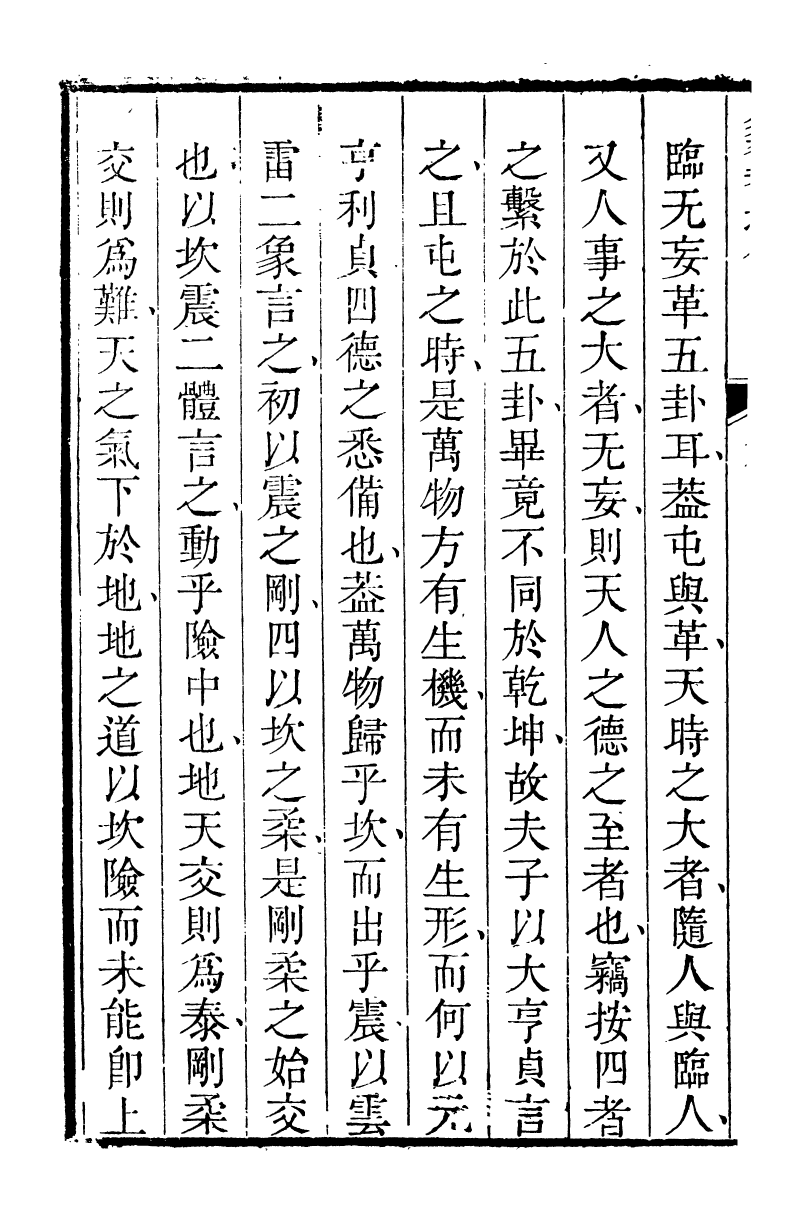 臨无妄革五卦耳、葢屯與革、天時之大者、隨人與臨人、
又人事之大者、无妄、則天人之德之至者也、竊按四者
之繫於此五卦、畢竟不同於乾坤、故夫子以大亨貞言
之、且屯之時、是萬物方有生機、而未有生形、而何以元
亨利貞四德之悉備也、葢萬物歸乎坎、而出乎震以雲
雷二象言之、初以震之剛、四以坎之柔、是剛柔之始交
也、以坎震二體言之、動乎險中也、地天交則為泰、剛柔
交則為難、天之氣下於地、地之道以坎險而未能卽上